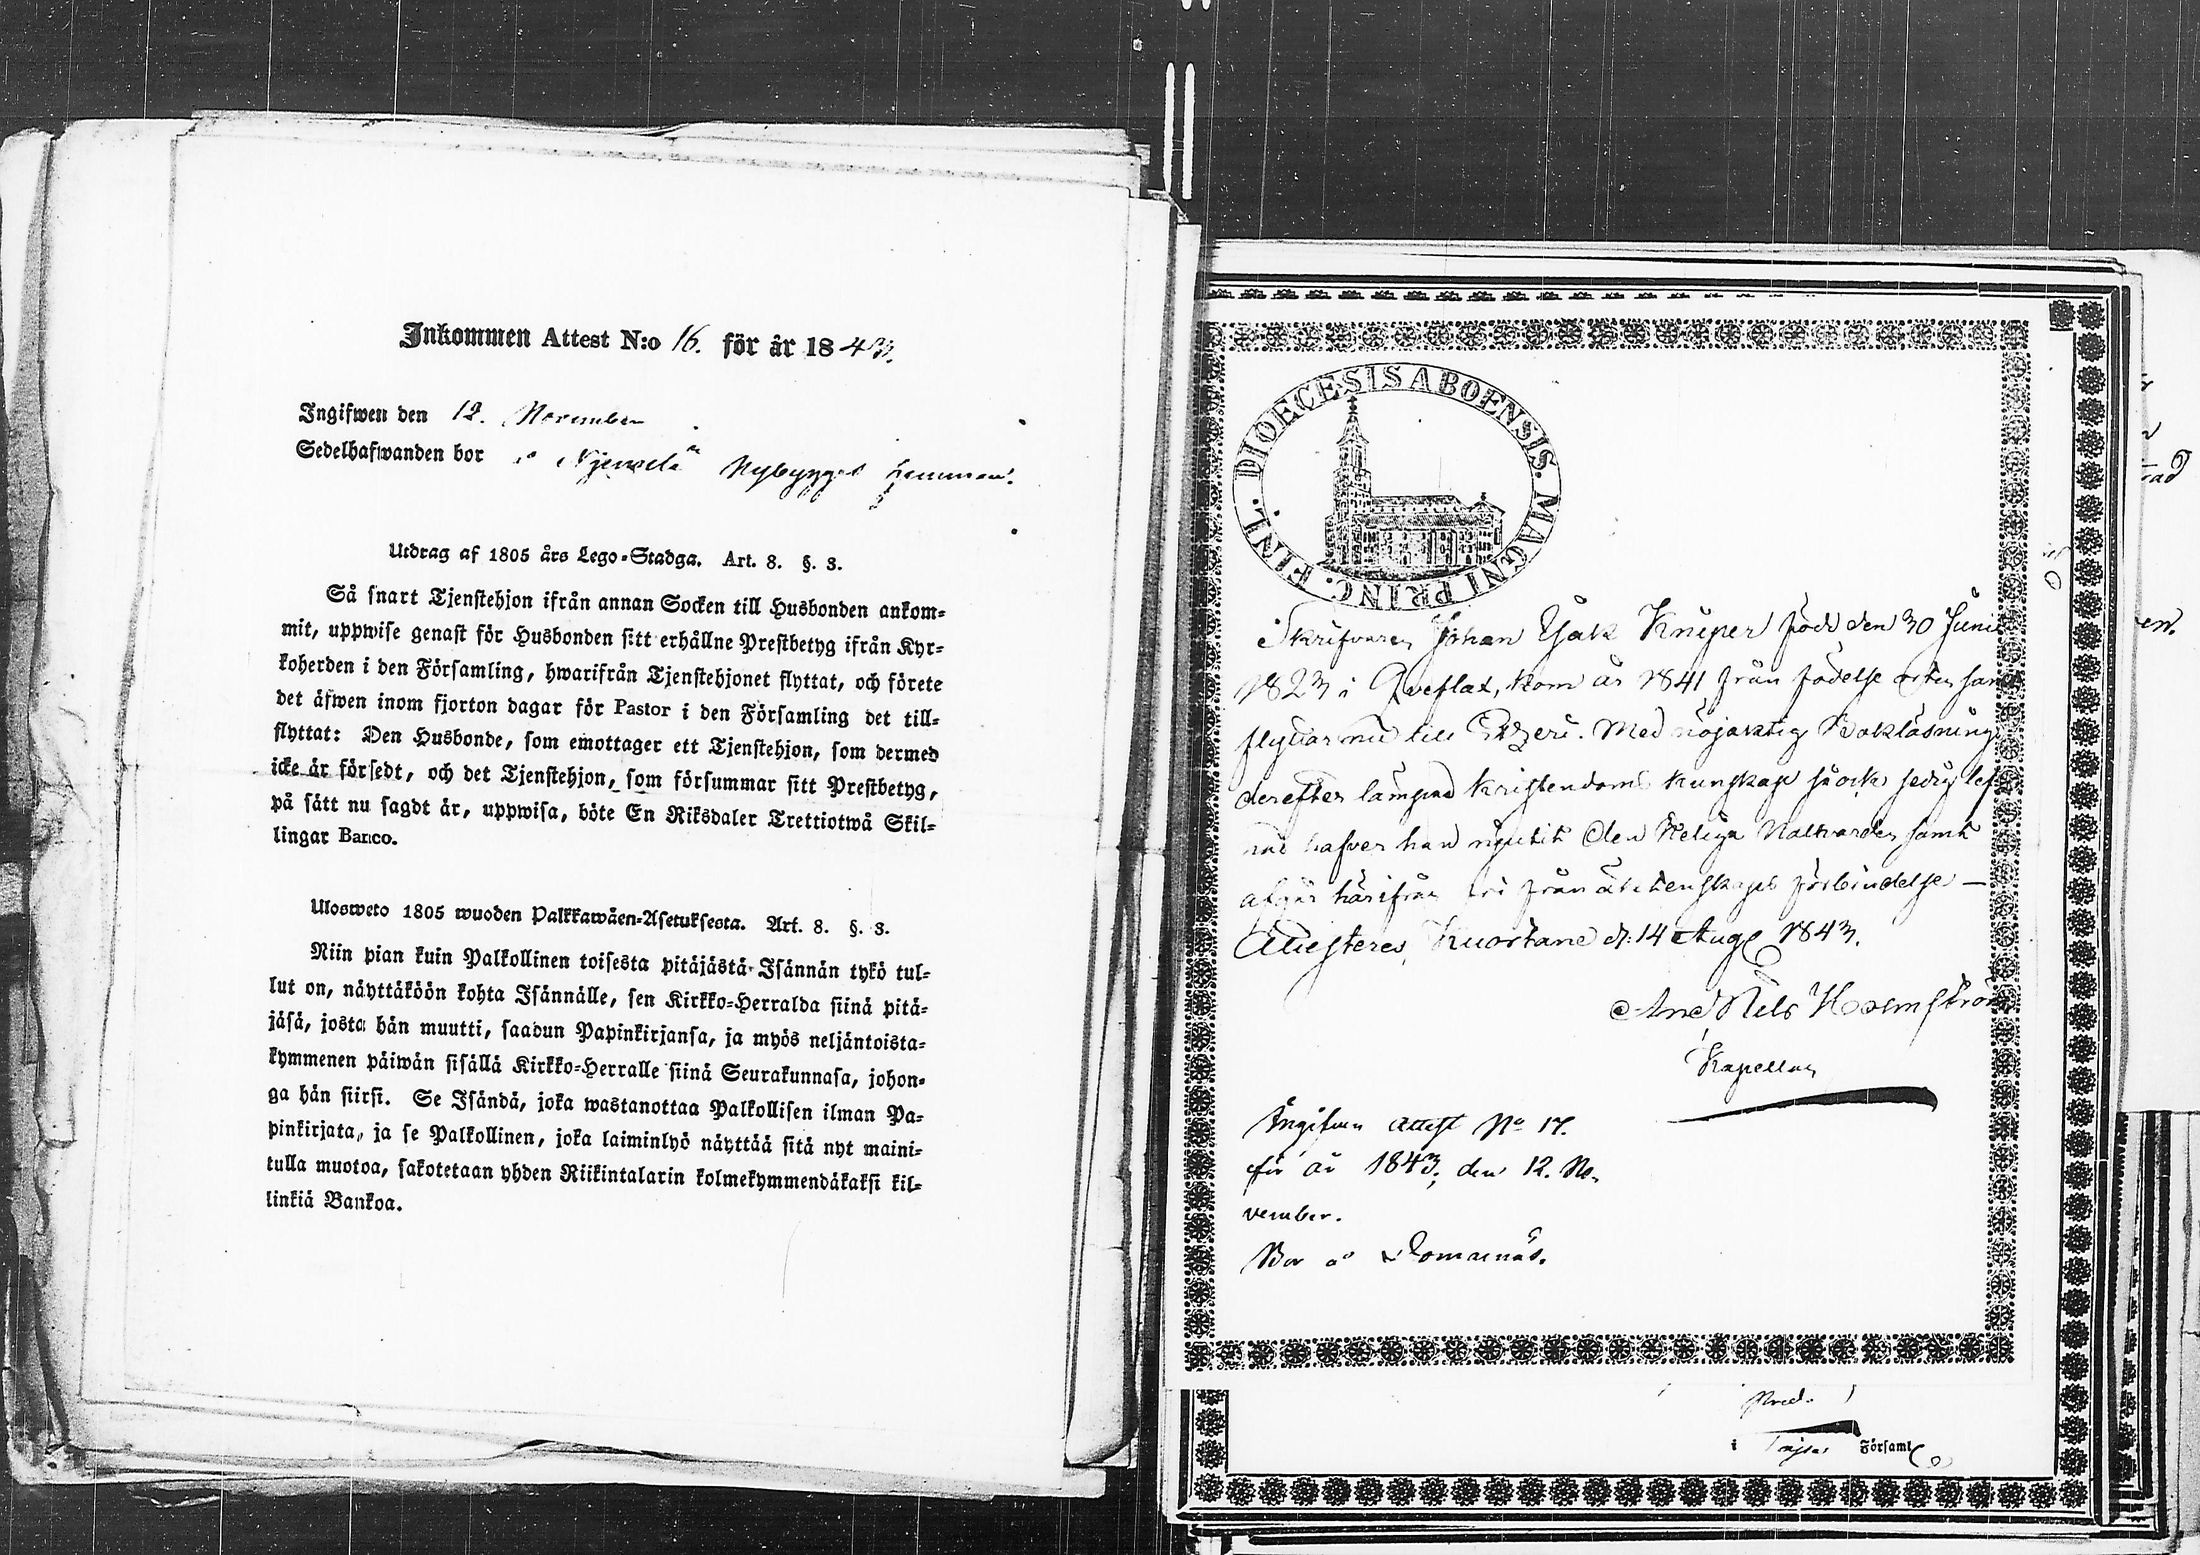 Inkommen Attest N:o 16. för år 1843.
Ingifwen den 12. November
Sedelhafwanden bor å Nybygget hemman.
Utdrag af 1805 års Lego-Stadga. Art. 8. §. 3.
Så snart Tjenstehjon ifrån annan Socken till Husbonden ankom-
mit, uppwise genast för Husbonden sitt erhållne Prestbetyg ifrån Kyr-
koherden i den Församling, hwarifrån Tjenstehjonet flyttat, och förete
det äfwen inom fjorton dagar för Pastor i den Församling det till-
flyttat: Den Husbonde, som emottager ett Tjenstehjon, som dermed
icke är försedt, och det Tjenstehjon, som försummar sitt Prestbetyg,
på sätt nu sagdt är, uppwisa, böte En Riksdaler Trettiotwå Skil-
lingar Banco.
Ulosweto 1805 wuoden Palkkawäen-Asetuksesta. Art. 8. §. 3.
Niin pian kuin Palkollinen toisesta pitäjästä Isännän tykö tul-
lut on, näyttäköön kohta Isännälle, sen Kirkko-Herralda siinä pitä-
jäsä, josta hän muutti, saadun Papinkirjansa, ja myös neljäntoista-
kymmenen päiwän sisällä Kirkko-Herralle siinä Seurakunnasa, johon-
ga hän siirsi. Se Isändä, joka wastanottaa Palkollisen ilman Pa-
pinkirjata, ja se Palkollinen, joka laiminlyö näyttää sitä nyt maini-
tulla muotoa, sakotetaan yhden Riikintalarin kolmekymmendäkaksi kil-
linkiä Bankoa.
DIOECESIS ABOENSIS. MAGNI PRINC. FINL.
Skrifvaren Johan Isak Kniper född den 30 Junii
1823 i Qveflax, kom år 1841 från födelse orten samt
flyttar nu till Etzeri. Med nöjaktig Bokläsning
derefter lämpad Kristendoms kunskap så ock sedig lef
nad hafver han njutit Den Heliga Nattvarden samt
afgår härifrån fri från äktenskaps förbindelse —
Attesteras, Kuortane d: 14 Aug 1843.
And Nils Holmström
Kapellan
Ingifven attest No 17.
för år 1843, den 12. No-
vember.
Bor å Tomasnäs.
Præd.
i Församl